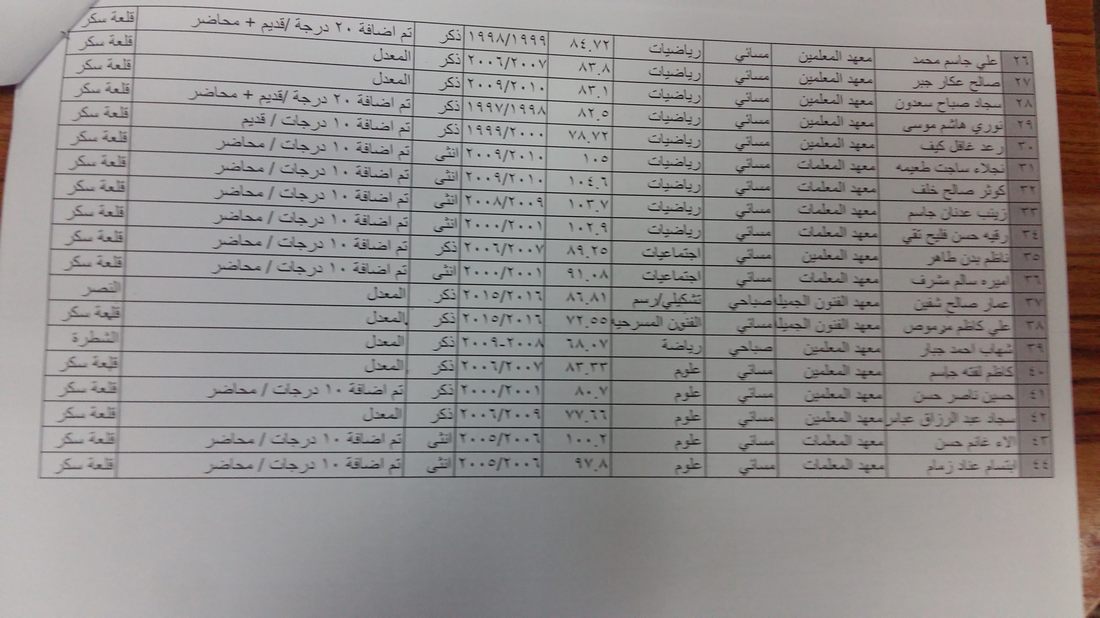 ٢٦ علي جاسم محمد معهد المعلمين مسائي رياضيات ٨٤.٧٢ ١٩٩٨/١٩٩٩ ذكر تم اضافة ٢٠ درجة /قديم + محاضر قلعة سكر
٢٧ صالح عكار جبر معهد المعلمين مسائي رياضيات ٨٣.٨ ٢٠٠٦/٢٠٠٧ ذكر المعدل قلعة سكر
٢٨ سجاد صباح سعدون معهد المعلمين مسائي رياضيات ٨٣.١ ٢٠٠٩/٢٠١٠ ذكر المعدل قلعة سكر
٢٩ نوري هاشم موسى معهد المعلمين مسائي رياضيات ٨٢.٥ ١٩٩٧/١٩٩٨ ذكر تم اضافة ٢٠ درجة /قديم + محاضر قلعة سكر
٣٠ رعد غافل كيف معهد المعلمين مسائي رياضيات ٧٨.٧٢ ١٩٩٩/٢٠٠٠ ذكر تم اضافة ١٠ درجات / قديم قلعة سكر
٣١ نجلاء ساجت طعيمه معهد المعلمات مسائي رياضيات ١٠٥ ٢٠٠٩/٢٠١٠ انثى تم اضافة ١٠ درجات / محاضر قلعة سكر
٣٢ كوثر صالح خلف معهد المعلمات مسائي رياضيات ١٠٤.٦ ٢٠٠٩/٢٠١٠ انثى تم اضافة ١٠ درجات / محاضر قلعة سكر
٣٣ زينب عدنان جاسم معهد المعلمات مسائي رياضيات ١٠٣.٧ ٢٠٠٨/٢٠٠٩ انثى تم اضافة ١٠ درجات / محاضر قلعة سكر
٣٤ رقيه حسن فليح تقي معهد المعلمات مسائي رياضيات ١٠٢.٩ ٢٠٠٠/٢٠٠١ انثى تم اضافة ١٠ درجات / محاضر قلعة سكر
٣٥ ناظم بدن طاهر معهد المعلمين مسائي اجتماعيات ٨٩.٢٥ ٢٠٠٦/٢٠٠٧ ذكر تم اضافة ١٠ درجات / محاضر قلعة سكر
٣٦ اميره سالم مشرف معهد المعلمات مسائي اجتماعيات ٩١.٠٨ ٢٠٠٠/٢٠٠١ انثى تم اضافة ١٠ درجات / محاضر قلعة سكر
٣٧ عمار صالح شفين معهد الفنون الجميلة صباحي تشكيلي/رسم ٨٦.٨١ ٢٠١٥/٢٠١٦ ذكر المعدل النصر
٣٨ علي كاظم مرموص معهد الفنون الجميلة مسائي الفنون المسرحية ٧٢.٥٥ ٢٠١٥/٢٠١٦ ذكر المعدل قلعة سكر
٣٩ شهاب احمد جبار معهد المعلمين صباحي رياضة ٦٨.٠٧ ٢٠٠٨-٢٠٠٩ ذكر المعدل الشطرة
٤٠ كاظم لفته جاسم معهد المعلمين مسائي علوم ٨٣.٣٣ ٢٠٠٦/٢٠٠٧ ذكر المعدل قلعة سكر
٤١ حسين ناصر حسن معهد المعلمين مسائي علوم ٨٠.٧ ٢٠٠٠/٢٠٠١ ذكر تم اضافة ١٠ درجات / محاضر قلعة سكر
٤٢ سجاد عبد الرزاق عباس معهد المعلمين مسائي علوم ٧٧.٦٦ ٢٠٠٦/٢٠٠٩ ذكر المعدل قلعة سكر
٤٣ الاء غانم حسن معهد المعلمات مسائي علوم ١٠٠.٢ ٢٠٠٥/٢٠٠٦ انثى تم اضافة ١٠ درجات / محاضر قلعة سكر
٤٤ ابتسام عناد زمام معهد المعلمات مسائي علوم ٩٧.٨ ٢٠٠٥/٢٠٠٦ انثى تم اضافة ١٠ درجات / محاضر قلعة سكر